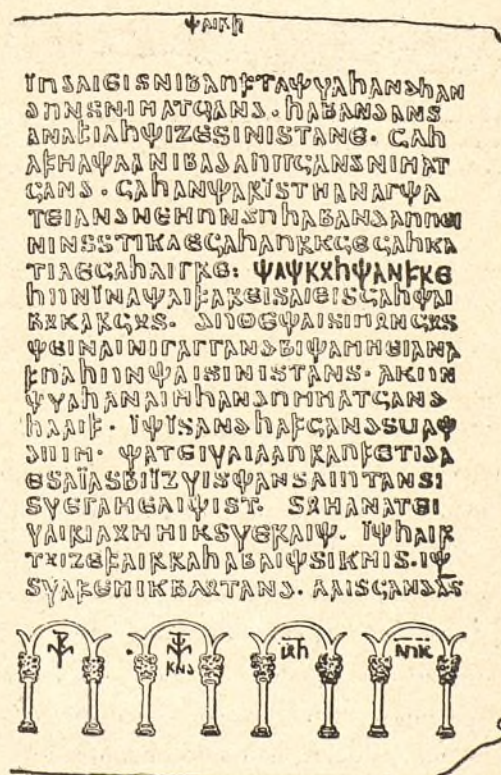 𐌸𐌰𐌹𐍂𐌷
𐌹̈𐌿𐌳𐌰𐌹𐌴𐌹𐍃𐌽𐌹𐌱𐌰𐌿𐍆𐍄𐌰𐌸𐍅𐌰𐌷𐌰𐌽𐌳𐌷𐌰𐌽
𐌳𐌿𐌽𐍃𐌽𐌹𐌼𐌰𐍄𐌾𐌰𐌽𐌳·𐌷𐌰𐌱𐌰𐌽𐌳𐌰𐌽𐍃
𐌰𐌽𐌰𐍆𐌹𐌻𐌷𐌸𐌹𐌶𐌴𐍃𐌹𐌽𐌹𐍃𐍄𐌰𐌽𐌴·𐌾𐌰𐌷
𐌰𐍆𐌼𐌰𐌸𐌻𐌰𐌽𐌹𐌱𐌰𐌳𐌰𐌿𐍀𐌾𐌰𐌽𐌳𐌽𐌹𐌼𐌰𐍄
𐌾𐌰𐌽𐌳·𐌾𐌰𐌷𐌰𐌽𐌸𐌰𐍂𐌹̈𐍃𐍄𐌼𐌰𐌽𐌰𐌲𐌸𐌰
𐍄𐌴𐌹𐌰𐌽𐌳𐌽𐌴𐌼𐌿𐌽𐌳𐌿𐌷𐌰𐌱𐌰𐌽𐌳𐌰𐌿𐍀𐌴𐌹
𐌽𐌹𐌽𐍃𐍃𐍄𐌹𐌺𐌻𐌴𐌾𐌰𐌷𐌰𐌿𐍂𐌺𐌾𐌴𐌾𐌰𐌷𐌺𐌰
𐍄𐌹𐌻𐌴𐌾𐌰𐌷𐌻𐌹𐌲𐍂𐌴: 𐌸𐌰𐌸𐍂𐍉𐌷𐌸𐌰𐌽𐍆𐍂𐌴
𐌷𐌿𐌽𐌹̈𐌽𐌰𐌸𐌰𐌹𐍆𐌰𐍂𐌴𐌹𐍃𐌰𐌹𐌴𐌹𐍃𐌾𐌰𐌷𐌸𐌰𐌹
𐌱𐍉𐌺𐌰𐍂𐌾𐍉𐍃· 𐌳𐌿𐍈𐌴𐌸𐌰𐌹𐍃𐌹𐍀𐍉𐌽𐌾𐍉𐍃
𐌸𐌴𐌹𐌽𐌰𐌹𐌽𐌹𐌲𐌰𐌲𐌲𐌰𐌽𐌳𐌱𐌹𐌸𐌰𐌼𐌼𐌴𐌹𐌰𐌽𐌰
𐍆𐌿𐌻𐌷𐌿𐌽𐌸𐌰𐌹𐍃𐌹𐌽𐌹𐍃𐍄𐌰𐌽𐍃·𐌰𐌺𐌿𐌽
𐌸𐍅𐌰𐌷𐌰𐌽𐌰𐌹𐌼𐌷𐌰𐌽𐌳𐌿𐌼𐌼𐌰𐍄𐌾𐌰𐌽𐌳
𐌷𐌻𐌰𐌹𐍆· 𐌹̈𐌸𐌹̈𐍃𐌰𐌽𐌳𐌷𐌰𐍆𐌾𐌰𐌽𐌳𐍃𐌵𐌰𐌸
𐌳𐌿𐌹𐌼· 𐌸𐌰𐍄𐌴𐌹𐍅𐌰𐌹𐌻𐌰𐍀𐍂𐌰𐌿𐍆𐌴𐍄𐌹𐌳𐌰
𐌴𐍃𐌰𐌹̈𐌰𐍃𐌱𐌹𐌹̈𐌶𐍅𐌹𐍃𐌸𐌰𐌽𐍃𐌻𐌹𐌿𐍄𐌰𐌽𐍃
𐍃𐍅𐌴𐌲𐌰𐌼𐌴𐌻𐌹𐌸𐌹𐍃𐍄· 𐍃𐍉𐌼𐌰𐌽𐌰𐌲𐌴𐌹
𐍅𐌰𐌹𐍂𐌹𐌻𐍉𐌼𐌼𐌹𐌺𐍃𐍅𐌴𐍂𐌰𐌹𐌸· 𐌹̈𐌸𐌷𐌰𐌹𐍂
𐍄𐍉𐌹𐌶𐌴𐍆𐌰𐌹𐍂𐍂𐌰𐌷𐌰𐌱𐌰𐌹𐌸𐍃𐌹𐌺𐌼𐌹𐍃·𐌹̈𐌸
𐍃𐍅𐌰𐍂𐌴𐌼𐌹𐌺𐌱𐌻𐍉𐍄𐌰𐌽𐌳· 𐌻𐌰𐌹𐍃𐌾𐌰𐌽𐌳𐌰𐌽𐍃